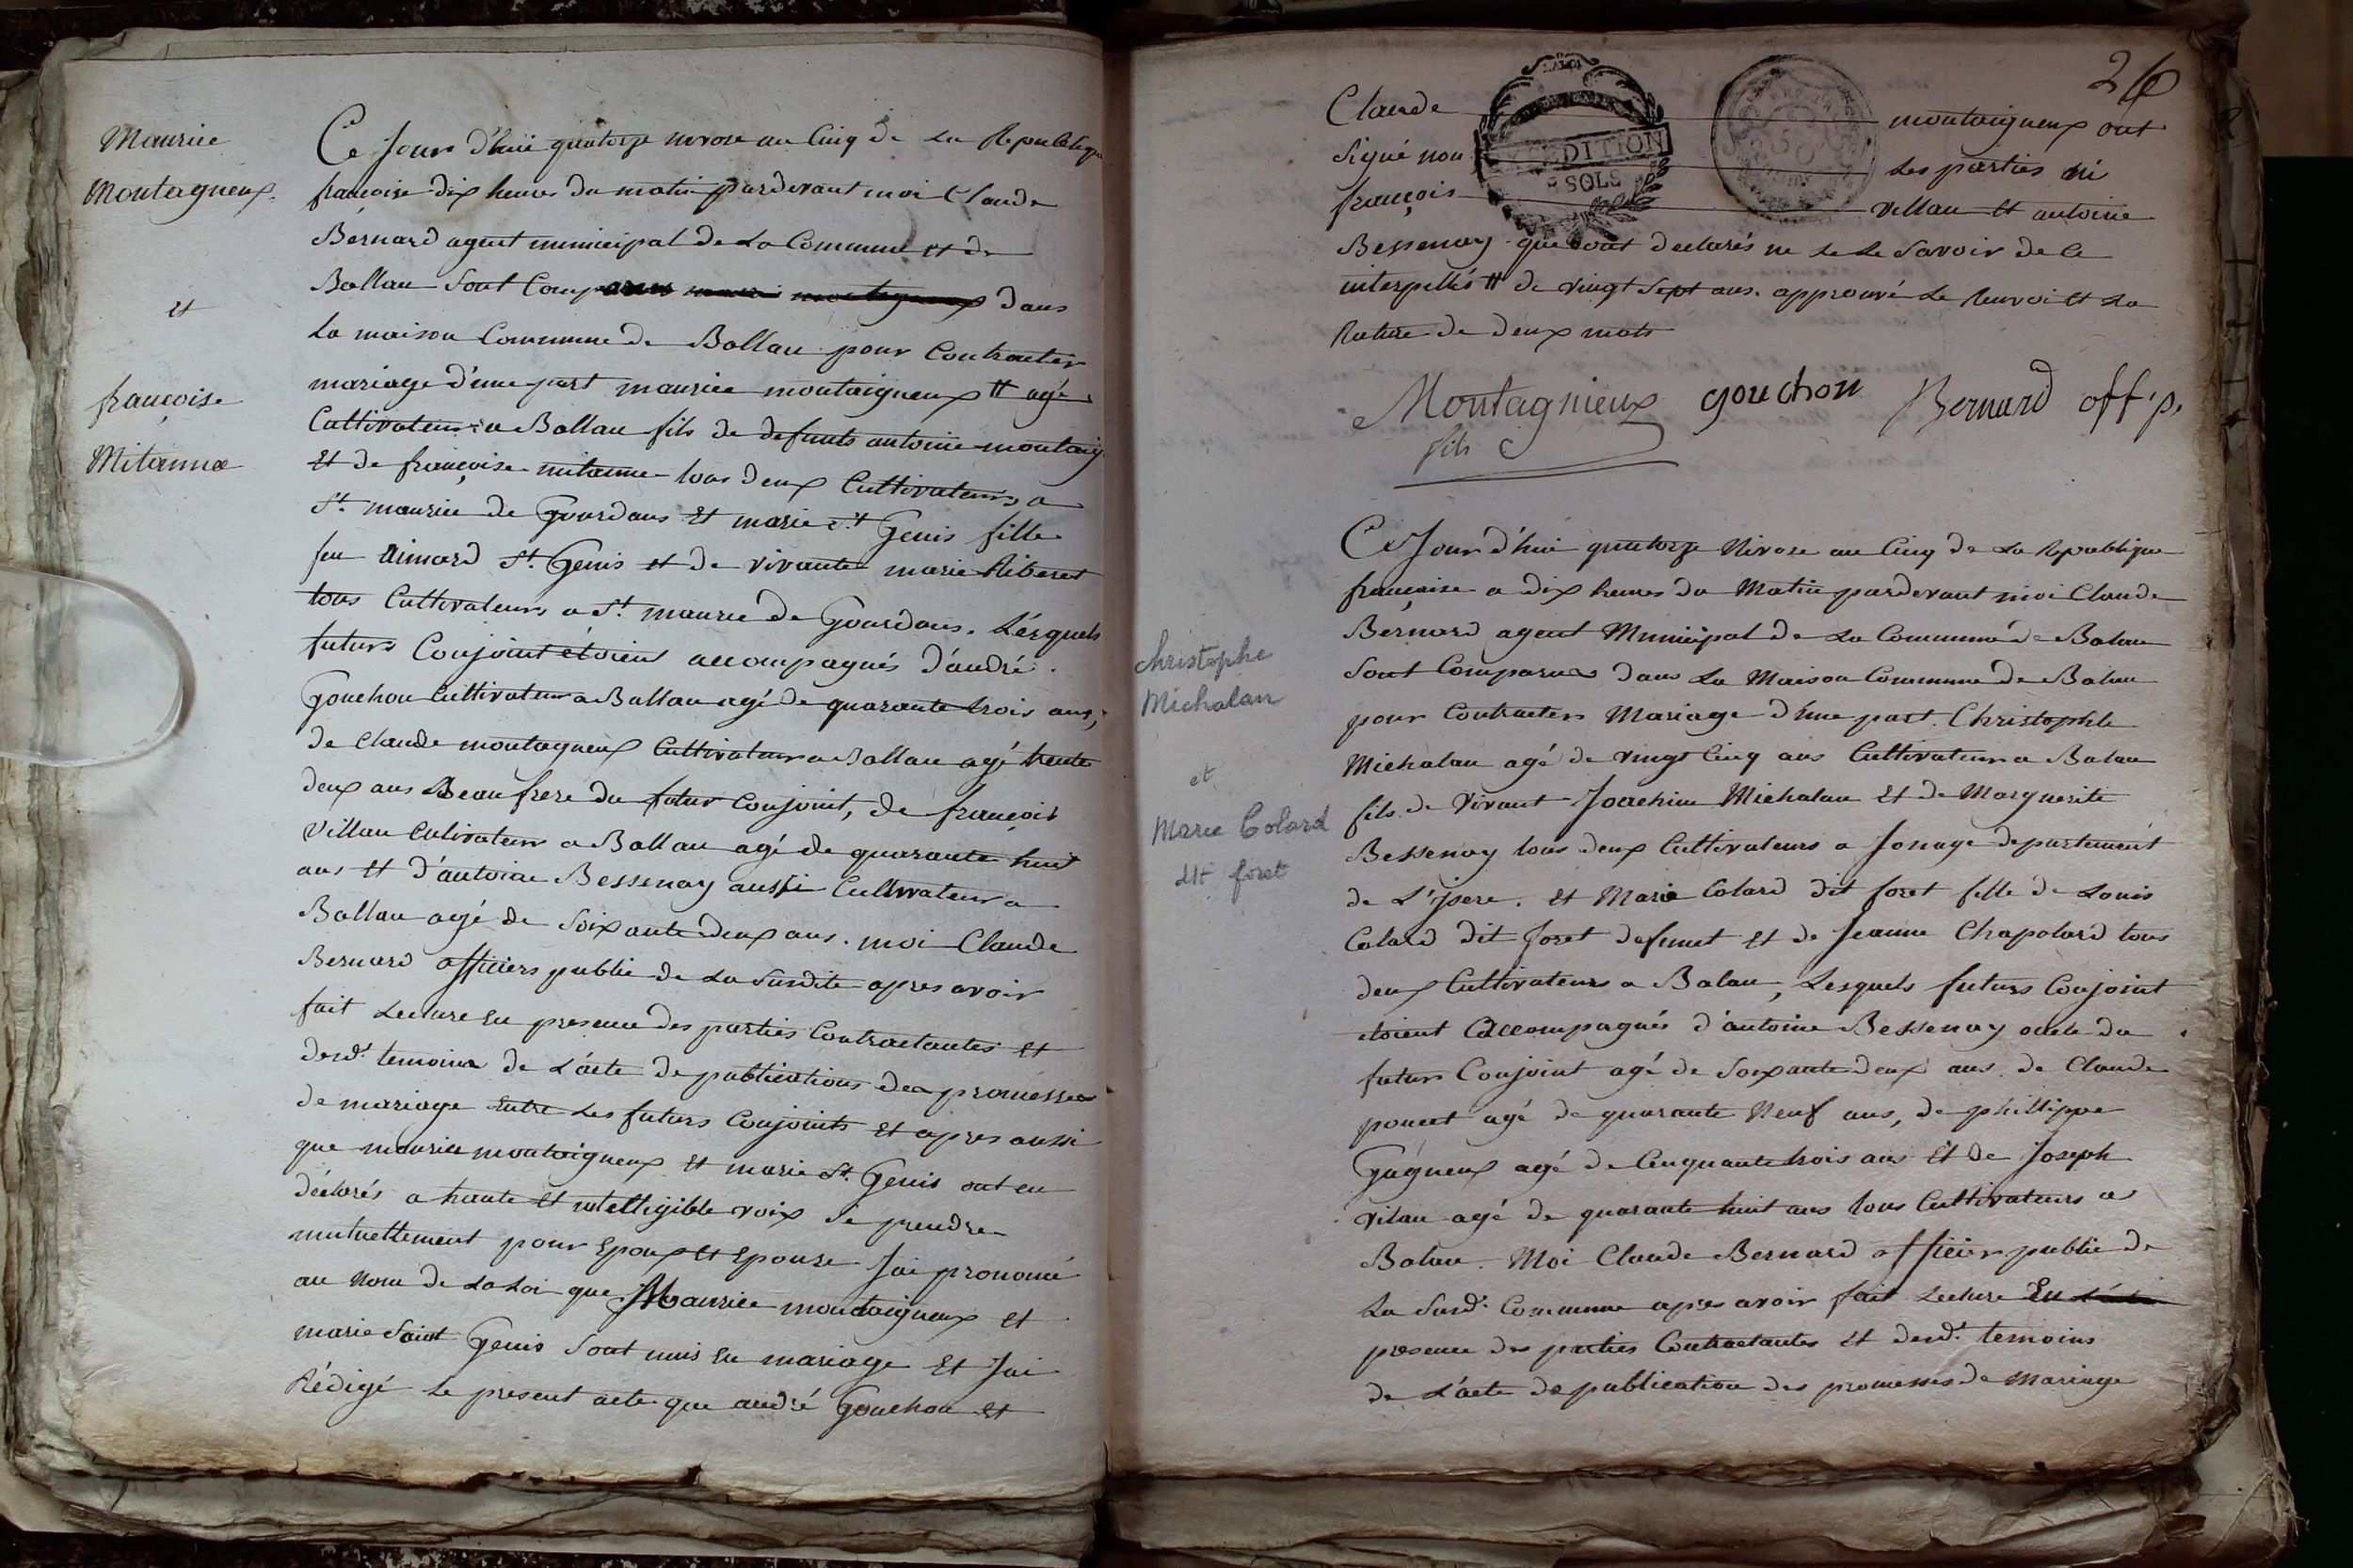 Maurice
Montagneux
et
françoise
Mitanne
Ce Jour d'hui quatorze nivose an Cinq de La Republique
françoise dix heures du matin pardevant moi Claude
Bernard agent municipal de La Commune et de
Ballan Sont Comparus dans
La maison Commune de Ballan pour Contracter
mariage d'une part maurice montaigneux # agé
Cultivateur a Ballan fils de defunts antoine montaig
Et de françoise mitanne tous deux Cultivateurs a
St. maurice de Gourdans Et marie St Genis fille
feu aimard St. Genis et de vivante marie Riberet
tous Cultivateurs a St. maurice de Gourdans. Lésquels
futurs Conjoint étoient accompagnés d'andré
Gouchon Cultivateur a Ballan agé de quarante trois ans,
de claude montagneux Cultivateur a Ballan agé trente
deux ans Beaufrere du futur conjoint, de françois
Villan Cultivateur a Ballan agé de quarante huit
ans et d'antoine Bessenay aussi Cultivateur a
Ballan agé de Soixante deux ans. moi Claude
Bernard officiers public de La Susdite apres avoir
fait Lecture En presence des parties Contractantes Et
desd. temoins de L'acte de publications des promesses
de mariage Entre Les futurs Conjoints Et apres aussi
que maurice montaigneux Et marie St. Genis ont eu
déclarés a haute Et intelligible voix Se prendre
mutuellement pour Epoux Et Epouse Jai prononcé
au Nom de La Loi que Maurice montaigneux Et
marie Saint Genis Sont unis En mariage Et Jai
Rédigé Le present acte que andré Gouchon Et
26
Claude montaigneux ont
Signé non Les parties ni
EXPEDITION
SOLS
françois Villan Et antoine
Bessenay que ont declarés ne Le Savoir de ce
interpellés # de vingt Sept ans. approuvé Le Renvoi Et La
Rature de deux mots
Montagnieux gouchon Bernard off. p.
fils
Christophe
Michalan
et
Marie Colard
dit foret
Ce Jour d'hui quatorze Nivose an Cinq de La Republique
française a dix heures du Matin pardevant moi Claude
Bernard agent Municipal de La Commune de Balan
Sont Comparus dans La Maison Commune de Balan
pour Contracter Mariage d'une part. Christophle
Michalan agé de vingt Cinq ans Cultivateur a Balan
fils de Vivant Joachim Michalan Et de Marguerite
Bessenay tous deux Cultivateurs a Jonage departement
de L'isere. Et Marie Colard dit foret fille de Louis
Colard dit foret defunct et de Jeanne Chapolard tous
deux Cultivateurs a Balan, Lesquels futurs Conjoint
étoient accompagnés d'antoine Bessenay oncle du
futur Conjoint agé de Soixante deux ans. de Claude
poncet agé de quarante Neuf ans, de phillippe
Gagneux agé de Cinquante trois ans Et de Joseph
vilan agé de quarante huit ans tous Cultivateurs a
Balan. Moi Claude Bernard officier public de
La Susd. Commune apres avoir fait Lecture En
presence des parties Contractantes Et desd. temoins
de L'acte de publication des promesses de Mariage